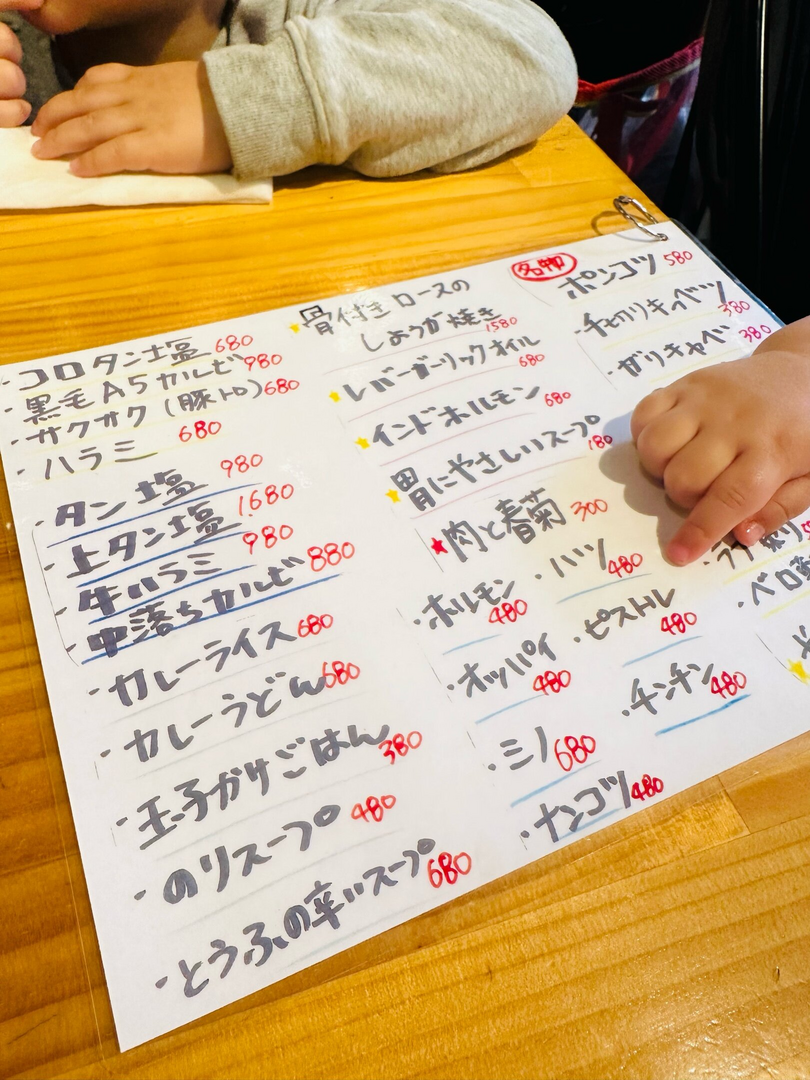 ・コロタン塩 680
・黒毛A5カルビ 980
・サクサク(豚トロ) 680
・ハラミ 680
・タン塩 980
・上タン塩 1.680
・牛ハラミ 980
・中落ちカルビ 880
・カレーライス 680
・カレーうどん 680
・玉子かけごはん 380
・のりスープ 480
・とうふの辛いスープ 680
骨付きロースの
しょうが焼き 1580
レバーガーリックオイル 680
インドホルモン 680
胃にやさしいスープ 180
肉と春菊 300
・ホルモン 480
・ハツ 480
・オッパイ 480
・ピストル 480
・ミノ 680
・チンチン 480
・ナンコツ 480
名物
ポンコツ 580
・チョレギキャベツ 380
・ガリキャベ 380